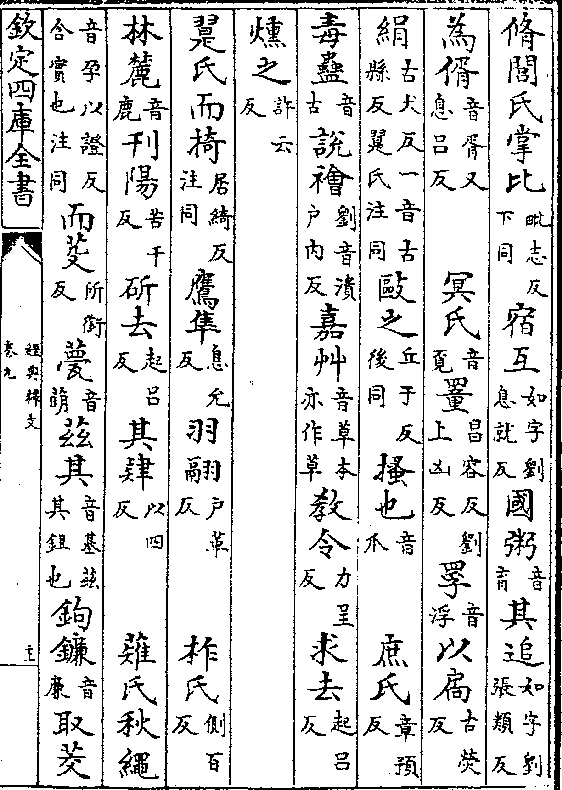 脩閭氏掌比毗志反下同宿互如字劉息就反國粥音育其追如字劉張類反
為偦音胥又息吕反 冥氏音覓罿昌容反劉上凶反罦音浮以扃古熒反
絹古犬反一音古縣反翨氏注同敺之丘于反後同搔也音爪 庶氏章預反
毒蠱音古說禬劉音潰户内反嘉艸音草本亦作草敎令力呈反求去起吕反
燻之許云反
翨氏而掎居綺反注同鷹隼息允反羽翮户革反 柞氏側百反
林麓音鹿刋陽苦干反斫去起吕反其肄以四反 薙氏秋繩
音孕以證反含實也注同而芟所銜反甍音萌兹其音基兹其鉏也鉤鐮音廉取茭
欽定四庫全書
經典釋文
卷九